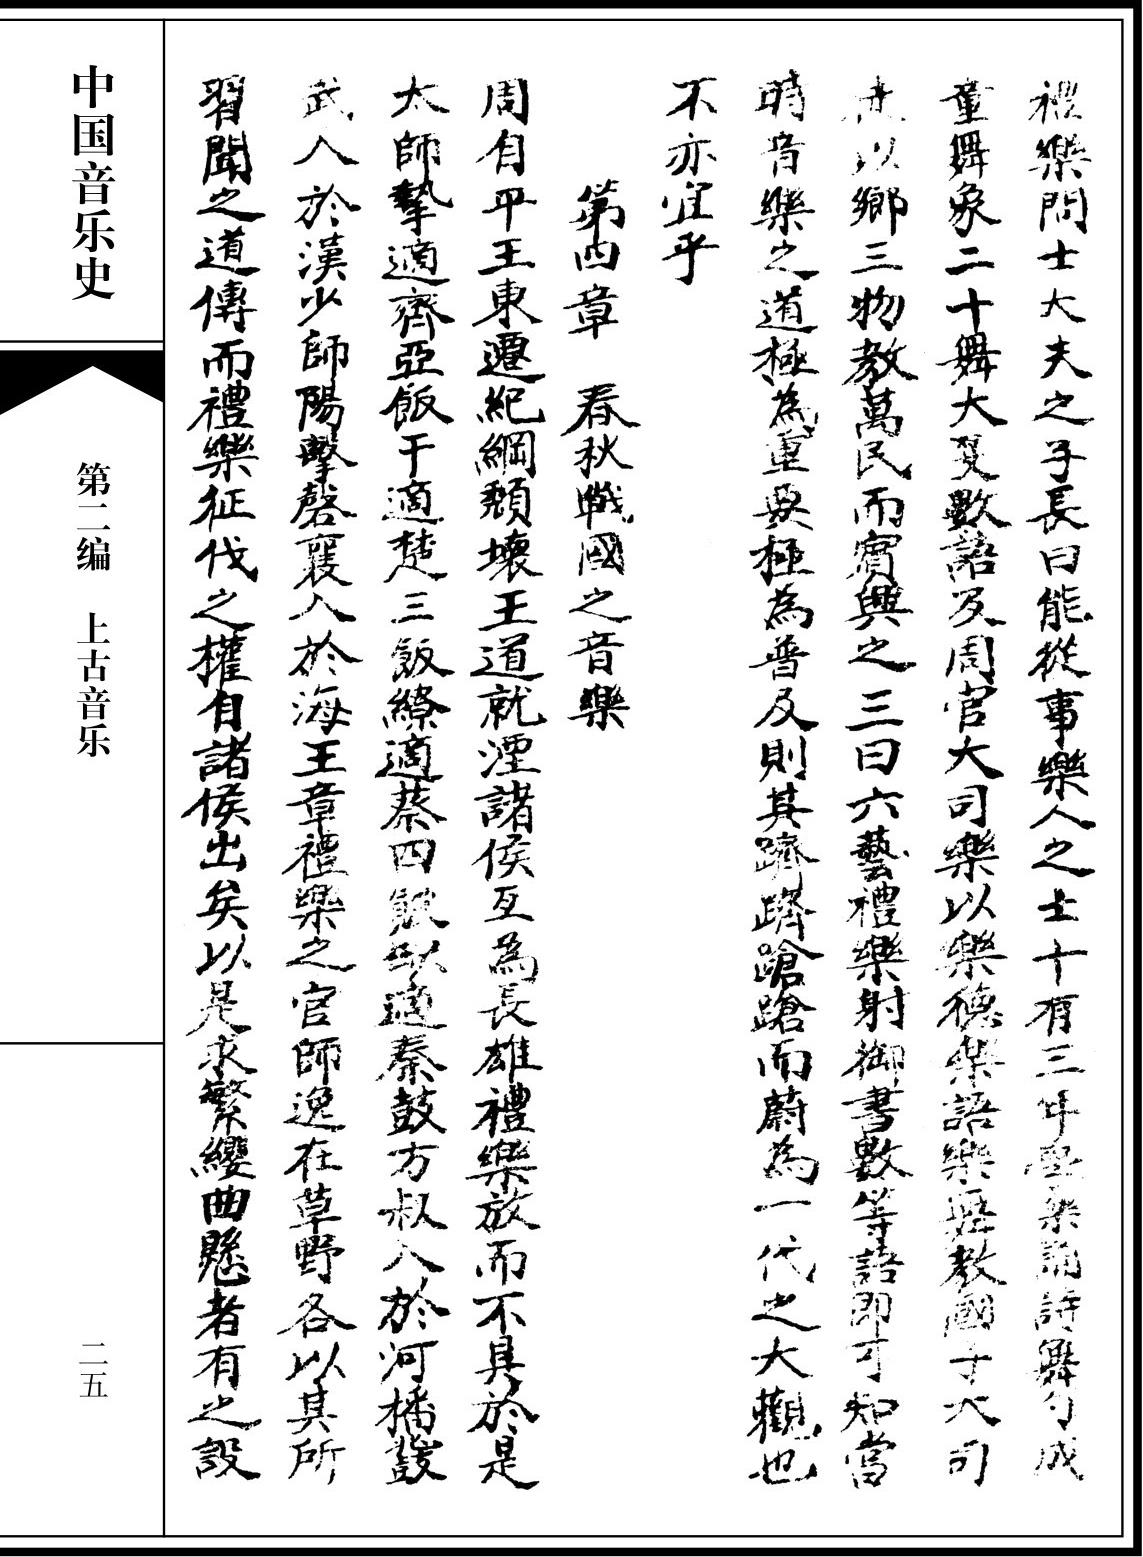 禮樂問士大夫之子長曰能從事樂人之士十有三年學樂誦詩舞勺成
童舞象二十舞大夏數語及周官大司樂以樂德樂語樂舞教國子大司
徒以鄉三物教萬民而賓興之三曰六藝禮樂射御書數等語即可知當
時音樂之道極為重要極為普及則其蹡蹡蹌蹌而蔚為一代之大觀也
不亦宜乎
第四章 春秋戰國之音樂
周自平王東遷紀綱頹壞王道就湮諸侯互為長雄禮樂放而不具於是
太師摯適齊亞飯干適楚三飯繚適蔡四飯缺適秦鼓方叔入於河播鼗
武入於漢少師陽擊磬襄入於海王章禮樂之官師逸在草野各以其所
習聞之道傳而禮樂征伐之權自諸侯出矣以是求繁纓曲懸者有之設
中国音乐史
第二编 上古音乐
二五